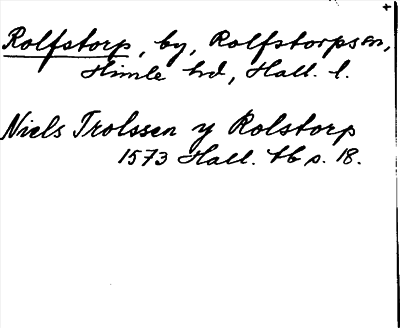 Rolfstorp, by, Rolfstorps sn,
Himle hd, Hall. l.
Niels Trolssen y Rolstorp
1573 Hall. tb s. 18.